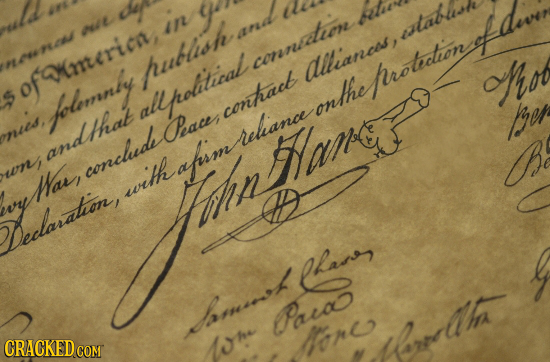 ould in
nounces our
s of America, in
onies, solemnly publish and
own; and that all political connection betw
levy War, conclude Peace, contract Alliances, establish
Declaration, with a firm reliance on the protection of divin
John Han
Rob
Ben
Samuel Chase
Wm Paca
CRACKED.COM